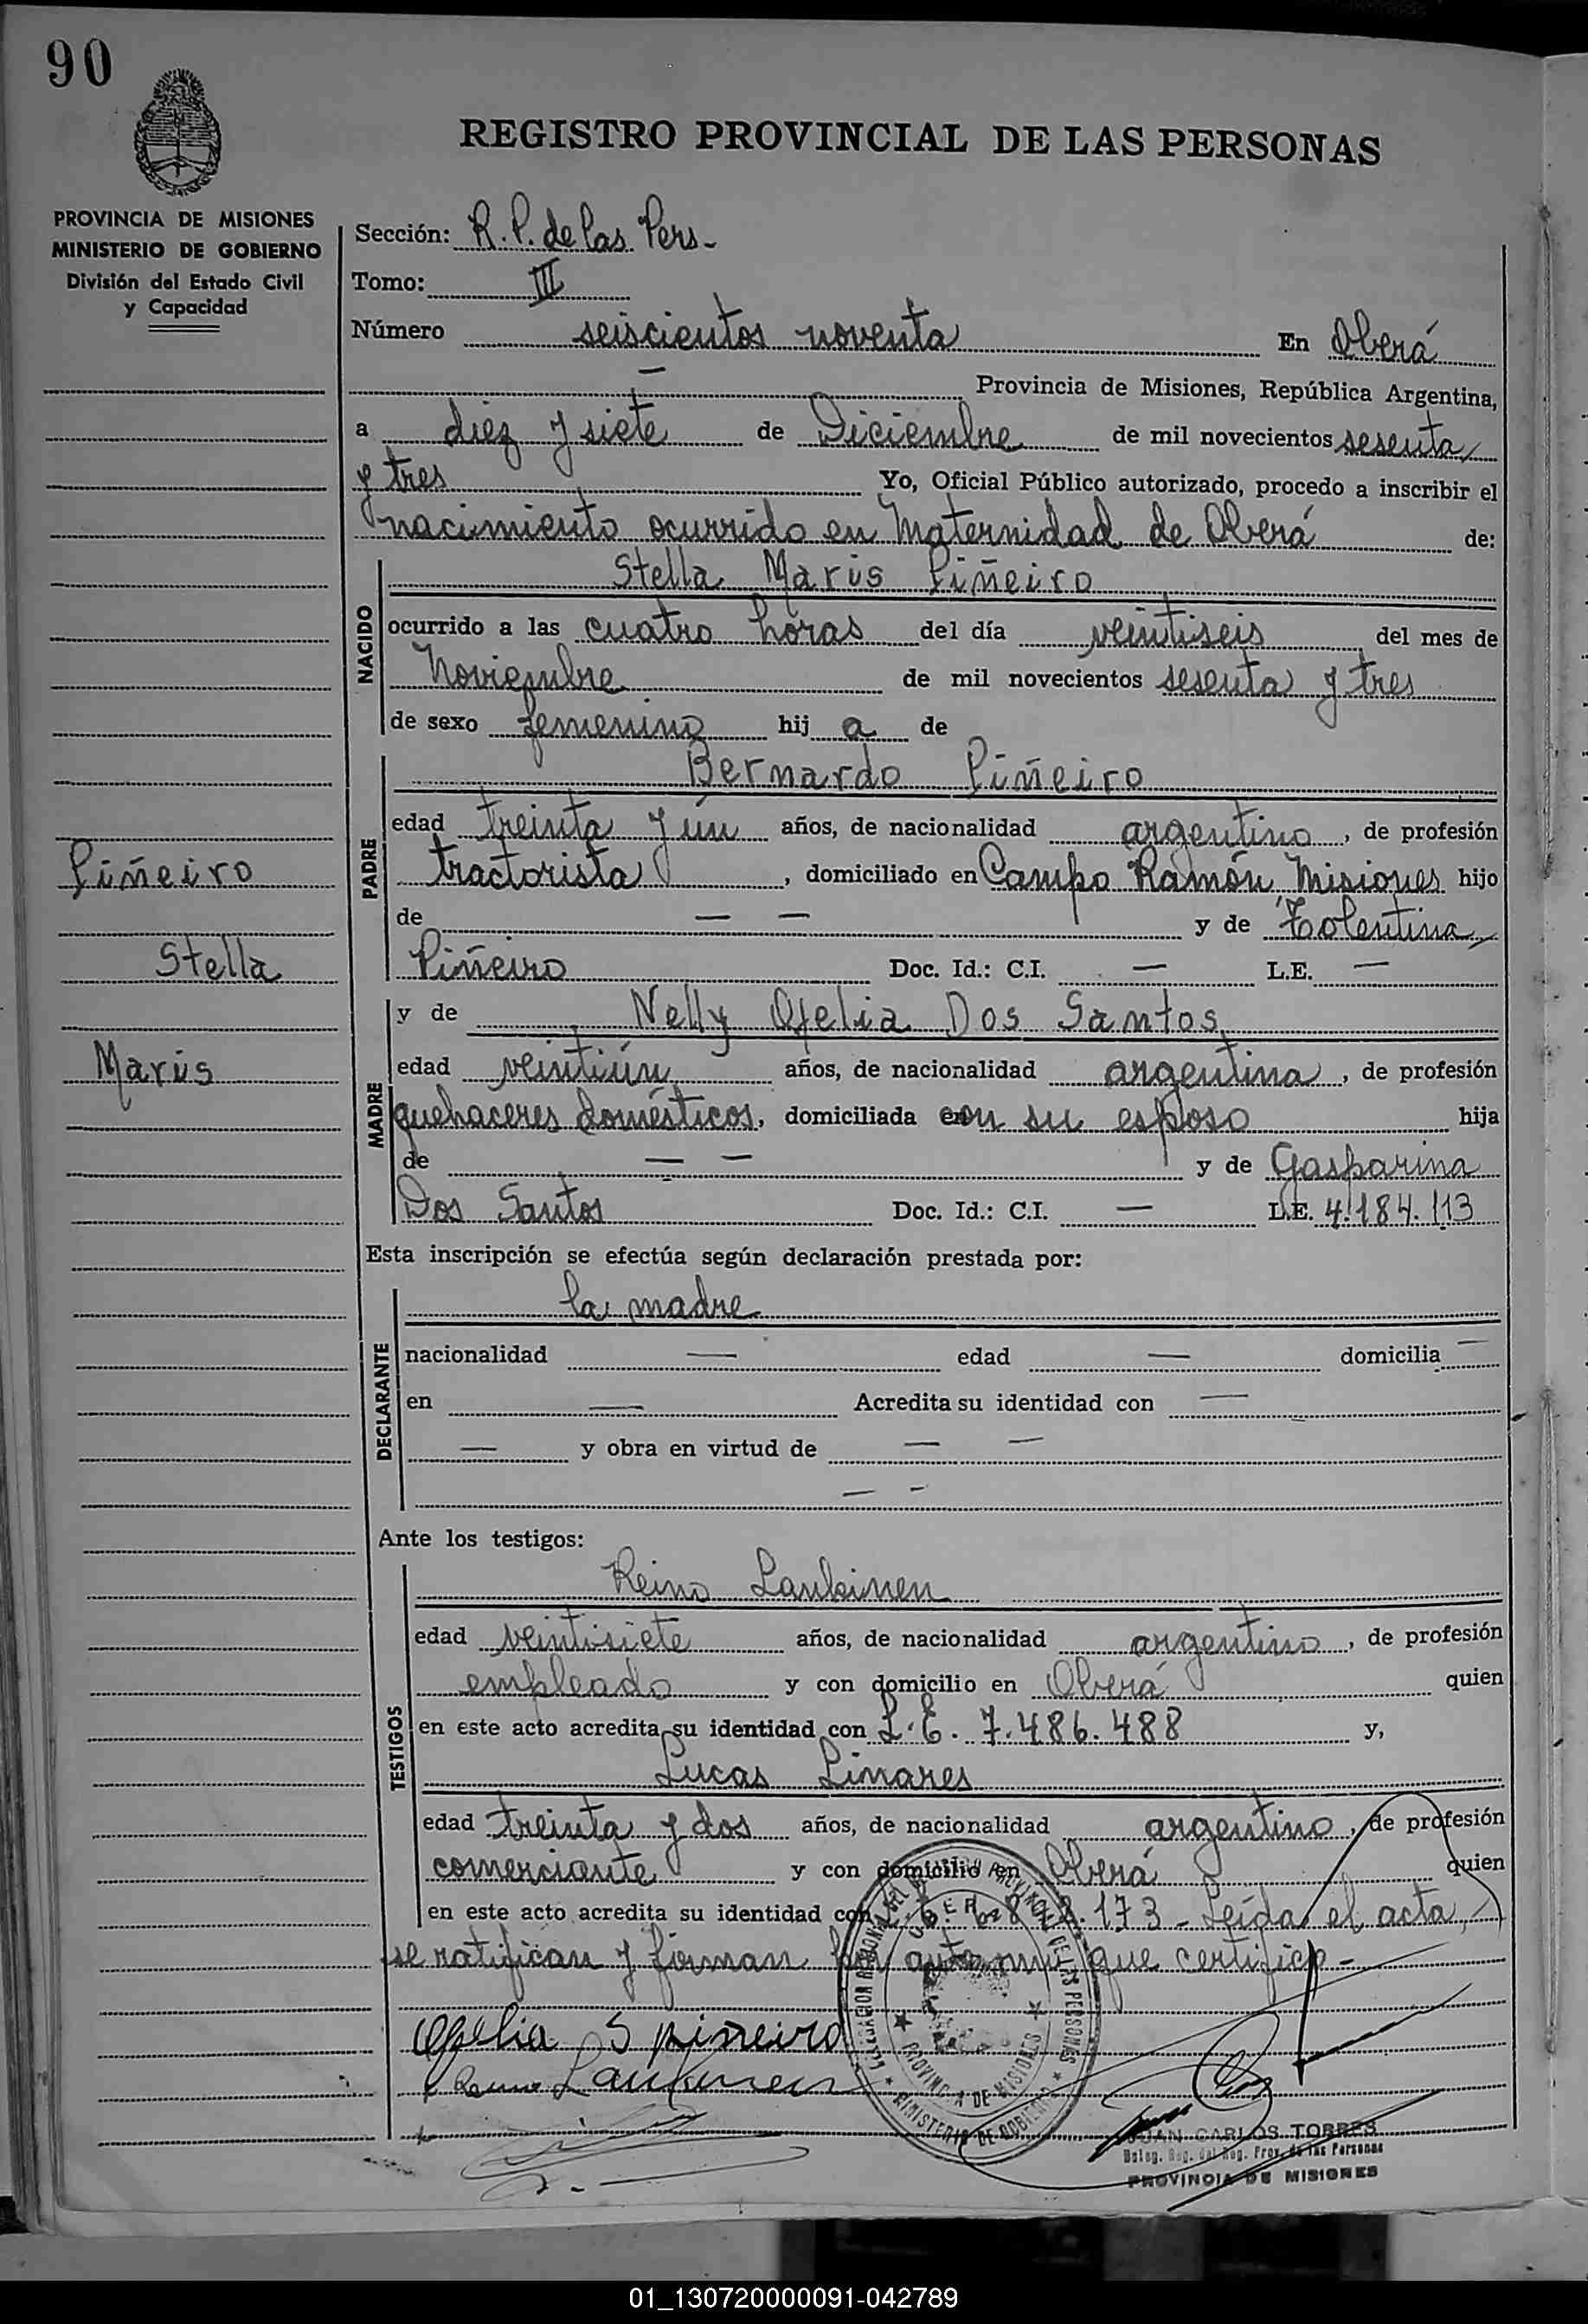 90
REGISTRO PROVINCIAL DE LAS PERSONAS
PROVINCIA DE MISIONES
MINISTERIO DE GOBIERNO
División del Estado Civil
y Capacidad
Sección: R. P. de las Pers.
Tomo: III
Número seiscientos noventa En Oberá
— Provincia de Misiones, República Argentina,
a diez y siete de Diciembre de mil novecientos sesenta
y tres Yo, Oficial Público autorizado, procedo a inscribir el
nacimiento ocurrido en Maternidad de Oberá de:
NACIDO
Stella Maris Piñeiro
ocurrido a las cuatro horas del día veintiseis del mes de
Noviembre de mil novecientos sesenta y tres
de sexo femenino hij a de
PADRE
Bernardo Piñeiro
edad treinta y un años, de nacionalidad argentino, de profesión
tractorista, domiciliado en Campo Ramón Misiones hijo
de — — y de Tolentina
Piñeiro Doc. Id.: C.I. — L.E. —
Piñeiro
Stella
Maris
MADRE
y de Nelly Ofelia Dos Santos
edad veintiún años, de nacionalidad argentina, de profesión
quehaceres domésticos, domiciliada con su esposo hija
de — — y de Gasparina
Dos Santos Doc. Id.: C.I. — L.E. 4.184.113
Esta inscripción se efectúa según declaración prestada por:
DECLARANTE
la madre
nacionalidad — edad — domicilia —
en — Acredita su identidad con —
— y obra en virtud de — —
— -
Ante los testigos:
TESTIGOS
Reino Laukinen
edad veintisiete años, de nacionalidad argentino, de profesión
empleado y con domicilio en Oberá quien
en este acto acredita su identidad con L.E. 7.486.488 y,
Lucas Linares
edad treinta y dos años, de nacionalidad argentino, de profesión
comerciante y con domicilio en Oberá quien
en este acto acredita su identidad con 173 - Leída el acta,
se ratifican y firman por ante mi que certifico -
Ofelia S piñeiro
Laukinen
PROVINCIA DE MISIONES
MINISTERIO DE GOBIERNO
JUAN CARLOS TORRES
Deleg. Reg. del Reg. Prov. de las Personas
PROVINCIA DE MISIONES
01_130720000091-042789